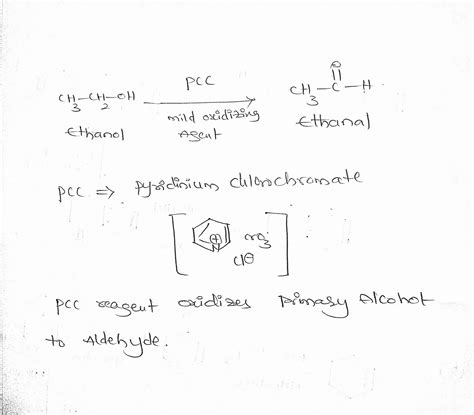 PCC
O
CH3-CH2-OH
CH3-C-H
mild oxidizing
Agent
Ethanol
Ethanal
PCC => pyridinium chlorochromate
N
⊕
CrO3
Cl⊖
PCC reagent oxidizes Primary Alcohol
to Aldehyde.